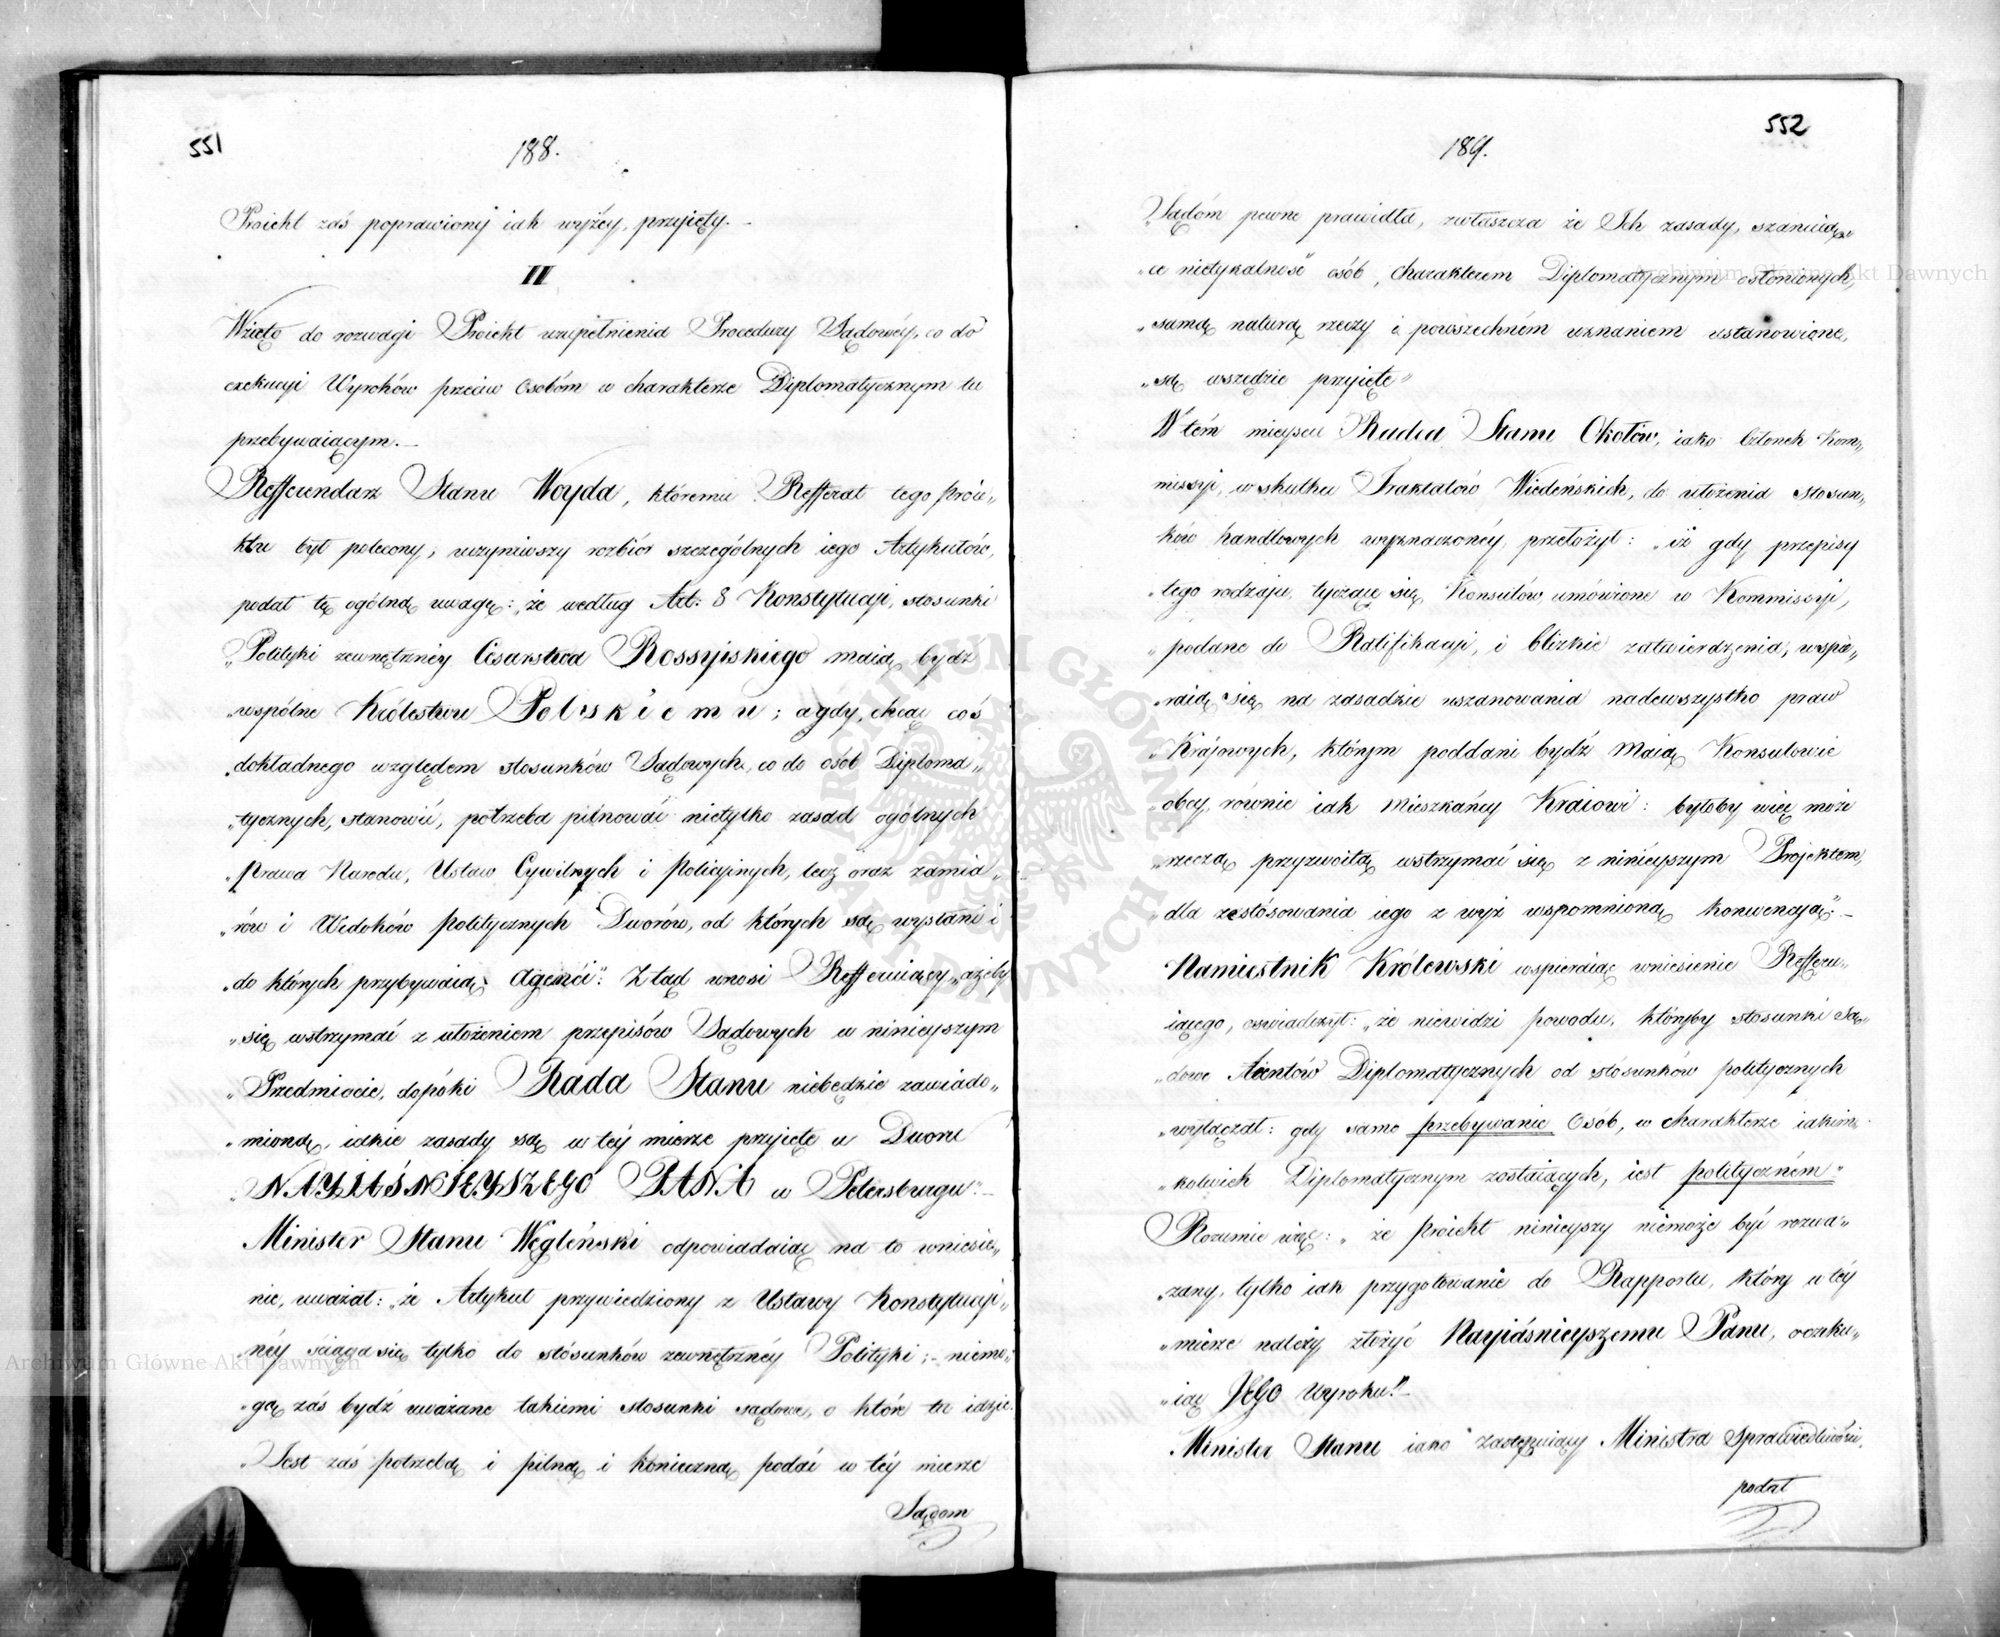 551
188.
Proiekt zaś poprawiony iak wyżéy, przyięty.—
II
Wzięto do rozwagi Proiekt uzupełnienia Procedury Sądowéy, co do
exekucyi Wyroków przeciw Osobóm w charakterze Diplomatycznym tu
przebywaiącym.—
Refferendarz Stanu Woyda, któremu Refferat tego Proie„
ktu był polecony, uczyniwszy rozbiór szczególnych iego Artykułów,
podał tę ogólną uwagę: „że według Art: 8 Konstytucyi, stosunki
„Polityki zewnętrznéy Cesarstwa Rossyiskiego maią bydź
„wspólne Królestwu Polskiemu; a gdy, chcąc coś
„dokładnego względem stosunków Sądowych, co do osób Diploma„
„tycznych, stanowić, potrzeba pilnować nietylko zasad ogólnych
„Prawa Narodu, Ustaw Cywilnych i Policyinych, lecz oraz zamia„
„rów i Widoków politycznych Dworów, od których są wysłani i
„do których przybywaią Agenci”: Ztąd wnosi Refferuiący „ażeby
„się wstrzymać z ułożeniem przepisów Sądowych w ninieyszym
„Przedmiocie, dopóki Rada Stanu niebędzie zawiado„
„mioną, iakie zasady są w téy mierze przyięte u Dworu
„NAYIAŚNIEYSZEGO PANA w Petersburgu”.—
Minister Stanu Węgleński odpowiadaiąc na to wniesie„
nie, uważał: „że Artykuł przywiedziony z Ustawy Konstytucyi„
„néy ściąga się tylko do stósunków zewnętrznéy Polityki; niemo„
„gą zaś bydź uważane takiemi stosunki sądowe, o które tu idzie.
„Jest zaś potrzebą i pilną i konieczną podać w téy mierze
Sądom
552
189.
„Sądóm pewne prawidła, zwłaszcza że Ich zasady, szanuią„
„ce nietykalność osób, charakterem Diplomatycznym osłonionych,
„samą naturą rzeczy i powszechném uznaniem ustanowione,
„są wszędzie przyięte”
W tém mieyscu Radca Stanu Okołów, iako Członek Kom„
missyi, w skutku Traktatów Wiedeńskich, do ułożenia stosun„
ków handlowych wyznaczonéy, przełożył: „iż gdy przepisy
„tego rodzaju, tyczące się Konsulów, umówione w Kommissyi,
„podane do Ratifikacyi, i blizkie zatwierdzenia, wspie„
„raią się na zasadzie uszanowania nadewszystko praw
„Krajowych, którym poddani bydź maią Konsulowie
„obcy, równie iak Mieszkańcy Kraiowi: byłoby więc może
„rzeczą przyzwoitą wstrzymać się z ninieyszym Projektem,
„dla zestósowania iego z wyż wspomnioną konwencyą”.—
Namiestnik Królewski wspieraiąc wniesienie Refferu„
iącego, oswiadczył: „że niewidzi powodu, któryby stosunki Są„
„dowe Aientów Diplomatycznych od stósunków politycznych
„wyłączał: gdy samo przebywanie Osób, w charakterze iakim„
„kolwiek Diplomatycznym zostaiących, iest polityczném”
Rozumie więc: „że Proiekt ninieyszy niemoże być rozwa„
„żany, tylko iak przygotowanie do Rapportu, który w téy
„mierze należy złożyć Nayiaśnieyszemu Panu, oczeku„
„iąc JEGO Wyroku”.—
Minister Stanu iako Zastępuiący Ministra Sprawiedliwości,
podał
Archiwum Główne Akt Dawnych
Archiwum Główne Akt Dawnych
ARCHIWUM GŁÓWNE AKT DAWNYCH